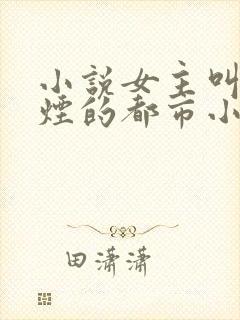 小說女主叫
煙的都市小
田瀟瀟